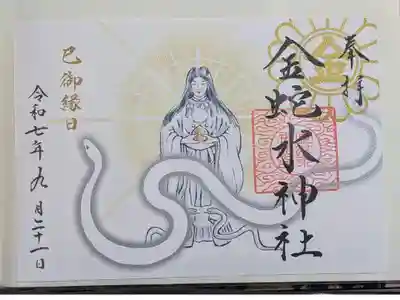 奉拝
金
金蛇水神社
巳御縁日
令和七年九月二十一日